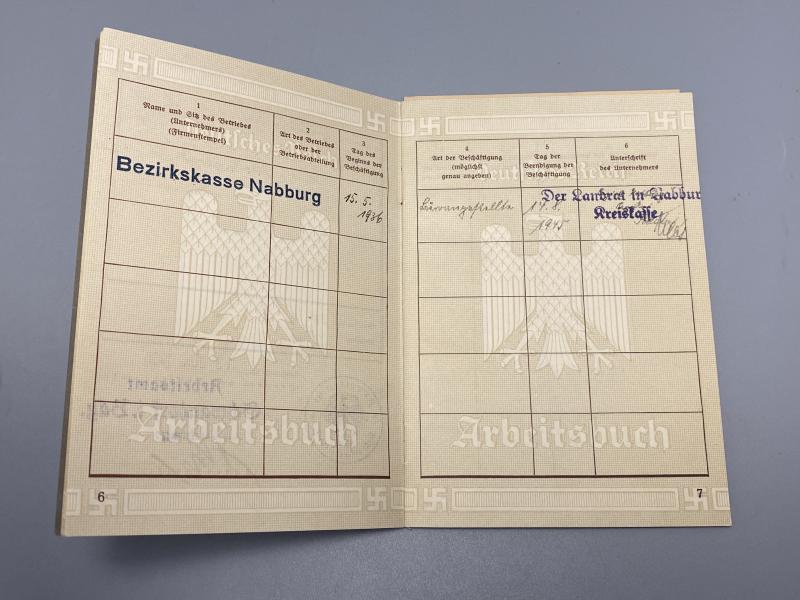 1
Name und Sitz des Betriebes
(Unternehmers)
(Firmenstempel)
2
Art des Betriebes
oder der
Betriebsabteilung
3
Tag des
Beginns der
Beschäftigung
Bezirkskasse Nabburg
15. 5.
1936
Arbeitsamt
Arbeitsbuch
6
4
Art der Beschäftigung
(möglichst
genau angeben)
5
Tag der
Beendigung der
Beschäftigung
6
Unterschrift
des Unternehmers
Deutsches Reich
Büroangestellte
14. 8.
1945
Der Landrat in Nabbur
Kreiskasse
Arbeitsbuch
7